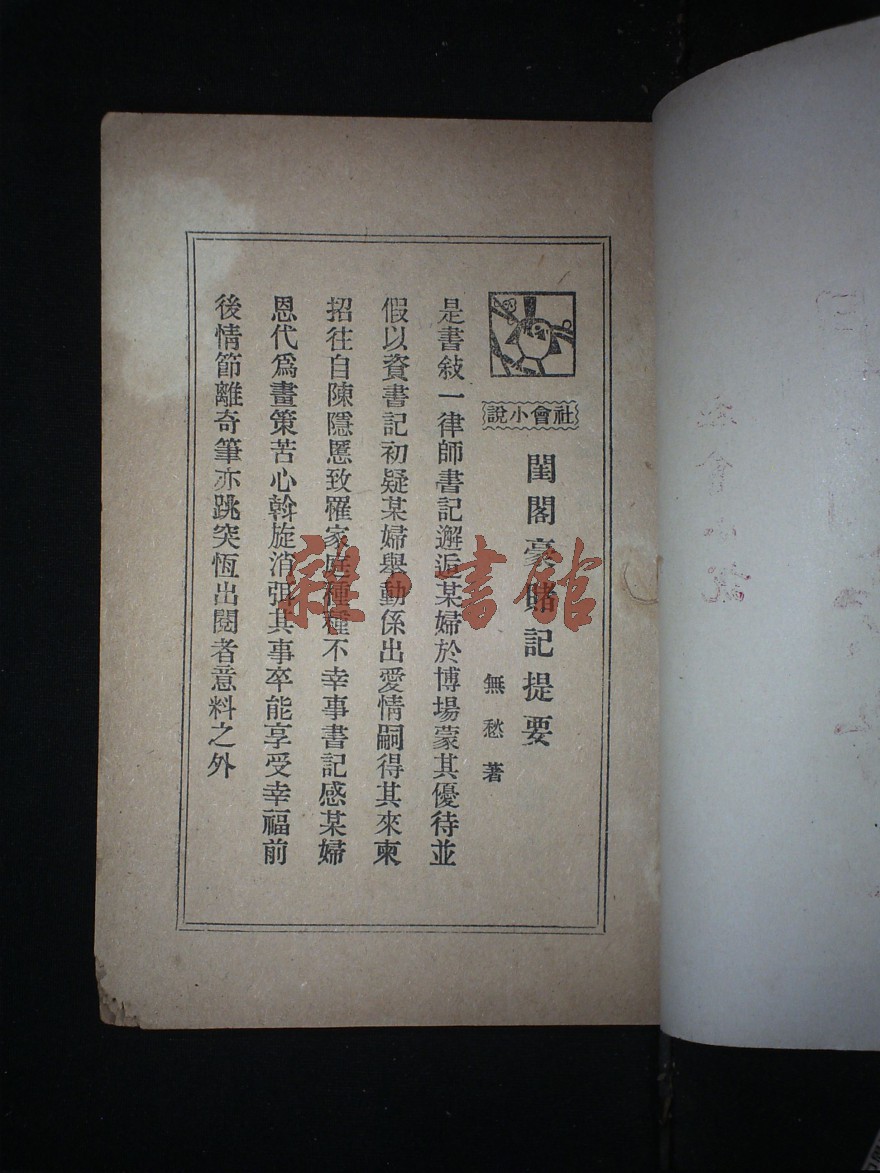 社會小說
閨閣豪賭記提要
無愁著
是書敍一律師書記邂逅某婦於博場蒙其優待並
假以資書記初疑某婦舉動係出愛情嗣得其來柬
招往自陳隱慝致罹家庭種種不幸事書記感某婦
恩代爲畫策苦心斡旋消弭其事卒能享受幸福前
後情節離奇筆亦跳突恆出閱者意料之外
雜·書館